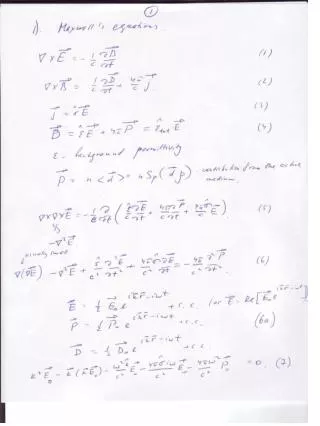 ①
1). Maxwell's equations.
∇×E⃗ = -1/c ∂B⃗/∂t (1)
∇×B⃗ = 1/c ∂D⃗/∂t + 4π/c j⃗ (2)
j⃗ = σ̂E⃗ (3)
D⃗ = ε̂E⃗ + 4πP⃗ = ε̂ E⃗ (4)
ε - background permittivity
P⃗ = n<d⃗> = nSp(d⃗ρ) - contribution from the active
medium.
∇×∇×E⃗ = -1/c ∂/∂t (ε̂/c ∂E⃗/∂t + 4π/c ∂P⃗/∂t + 4πσ̂/c E⃗) (5)
-∇²E⃗
∇(∇E⃗) - ∇²E⃗ + ε̂/c² ∂²E⃗/∂t² + 4πσ̂/c² ∂E⃗/∂t = -4π/c² ∂²P⃗/∂t² (6)
E⃗ = ½ E⃗₀ e^{ik⃗r⃗-iωt} + c.c. (or E⃗ = Re[E⃗₀ e^{ik⃗r⃗-iωt}
P⃗ = ½ P⃗₀ e^{ik⃗r⃗-iωt} + c.c. (6a)
D⃗ = ½ D⃗₀ e^{ik⃗r⃗-iωt} + c.c.
k²E⃗₀ - k⃗(k⃗E⃗₀) - ω²ε̂/c² E⃗₀ - 4πσ̂iω/c² E⃗₀ - 4πω²/c² P⃗₀ = 0. (7)